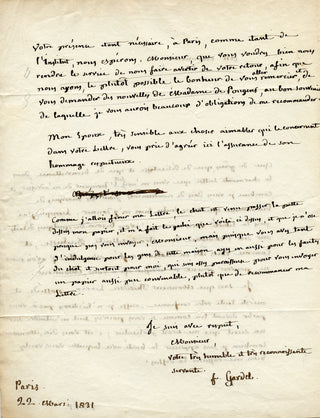 votre présence étant nécessaire, à Paris, comme étant de
l'Institut, nous espérons, Monsieur, que vous voudrez bien nous
rendre le service de nous faire avertir de votre retour, afin que
nous ayons, le plutôt possible le bonheur de vous remercier, et
aller
vous demander des nouvelles de Madame de Pougens, au bon souvenir
de laquelle je vous aurois beaucoup d'obligations de me recommander.
Mon Epoux, très sensible aux choses aimables qui le concernent
dans votre Lettre, vous prie d'agréer ici l'assurance de son
hommage respectueux.
Comme j'allois finir ma Lettre le chat est venu passer la patte
dessus mon papier, et m'a fait le pâté que voilà ci dessus, et que je n'ose
presque pas vous envoyer, Monsieur, mais puisque vous avez tant
d'indulgence pour les gens de cette maison, ayez en aussi pour les fautes
du chat et surtout pour moi, qui suis assez paresseuse pour vous envoyer
un papier aussi peu convenable, plutôt que de recommencer ma
Lettre.
Je suis avec respect,
Monsieur
votre très humble et très reconnaissante
servante.
f. Gardel.
Paris
22 Mars 1831